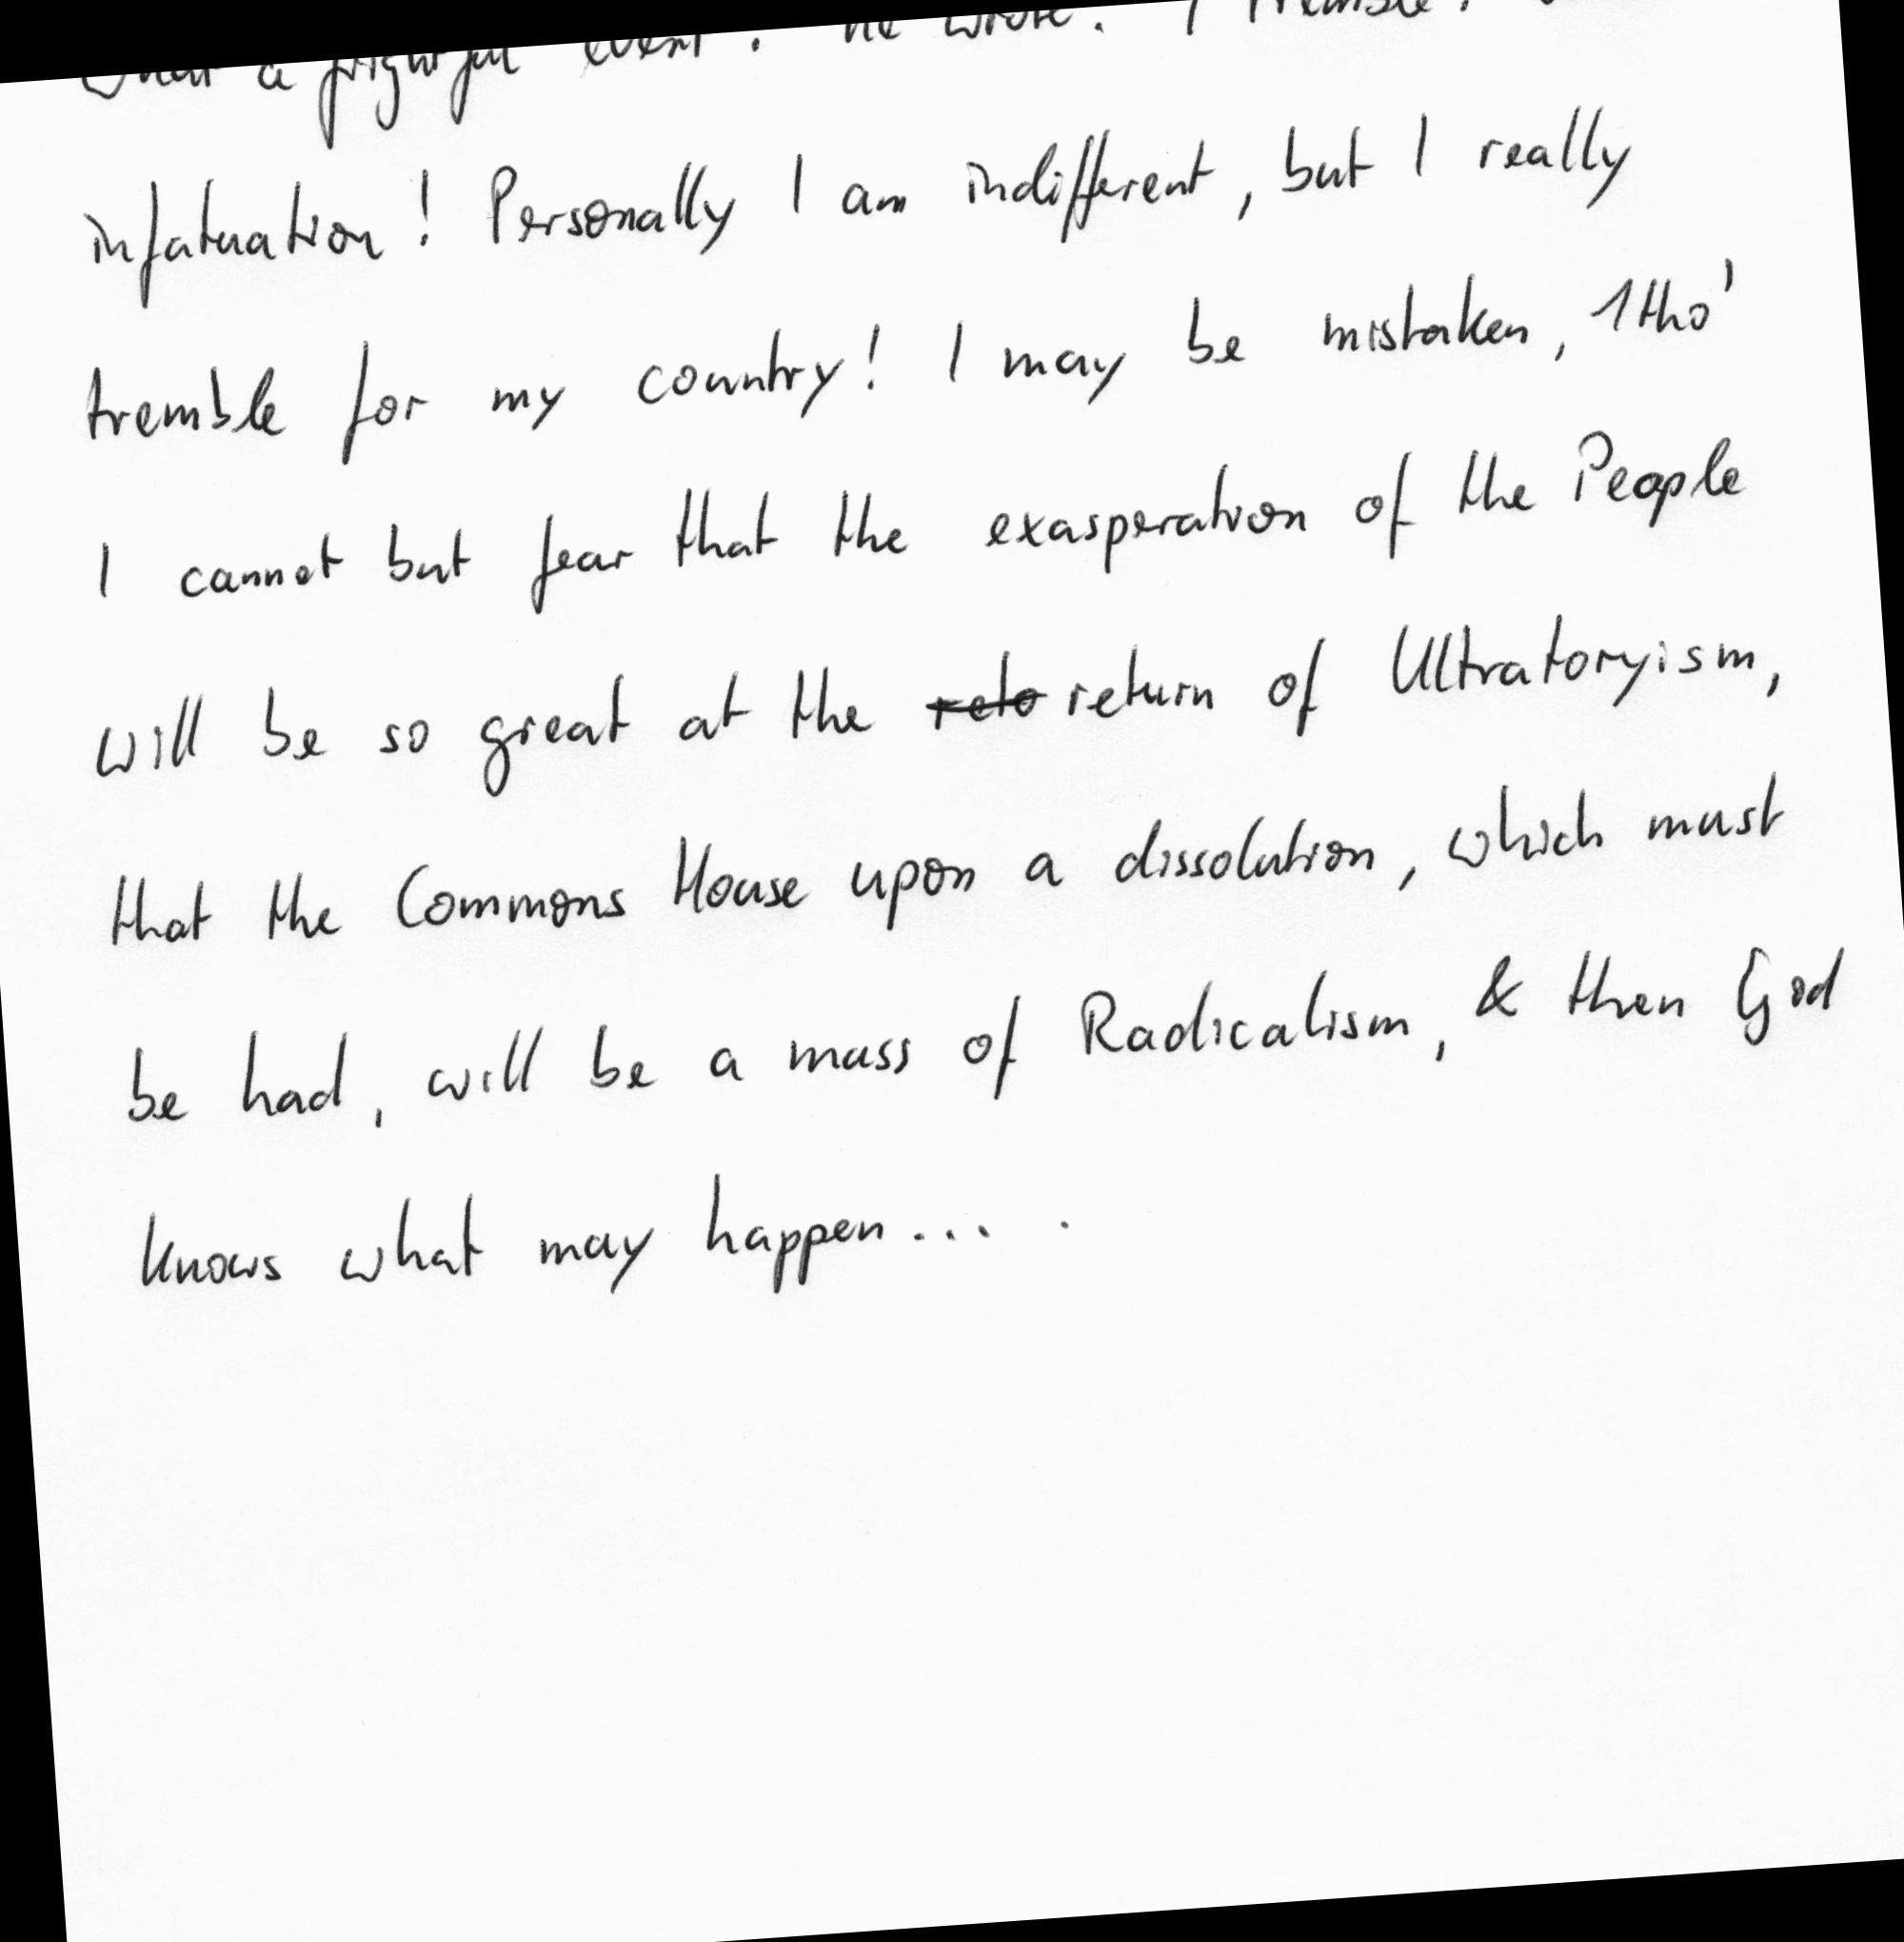 What a frightful event! he wrote. I tremble!
infatuation! Personally I am indifferent, but I really
tremble for my country! I may be mistaken, 1tho'
I cannot but fear that the exasperation of the People
will be so great at the reto return of Ultratoryism,
that the Commons House upon a dissolution, which must
be had, will be a mass of Radicalism, & then God
knows what may happen... .